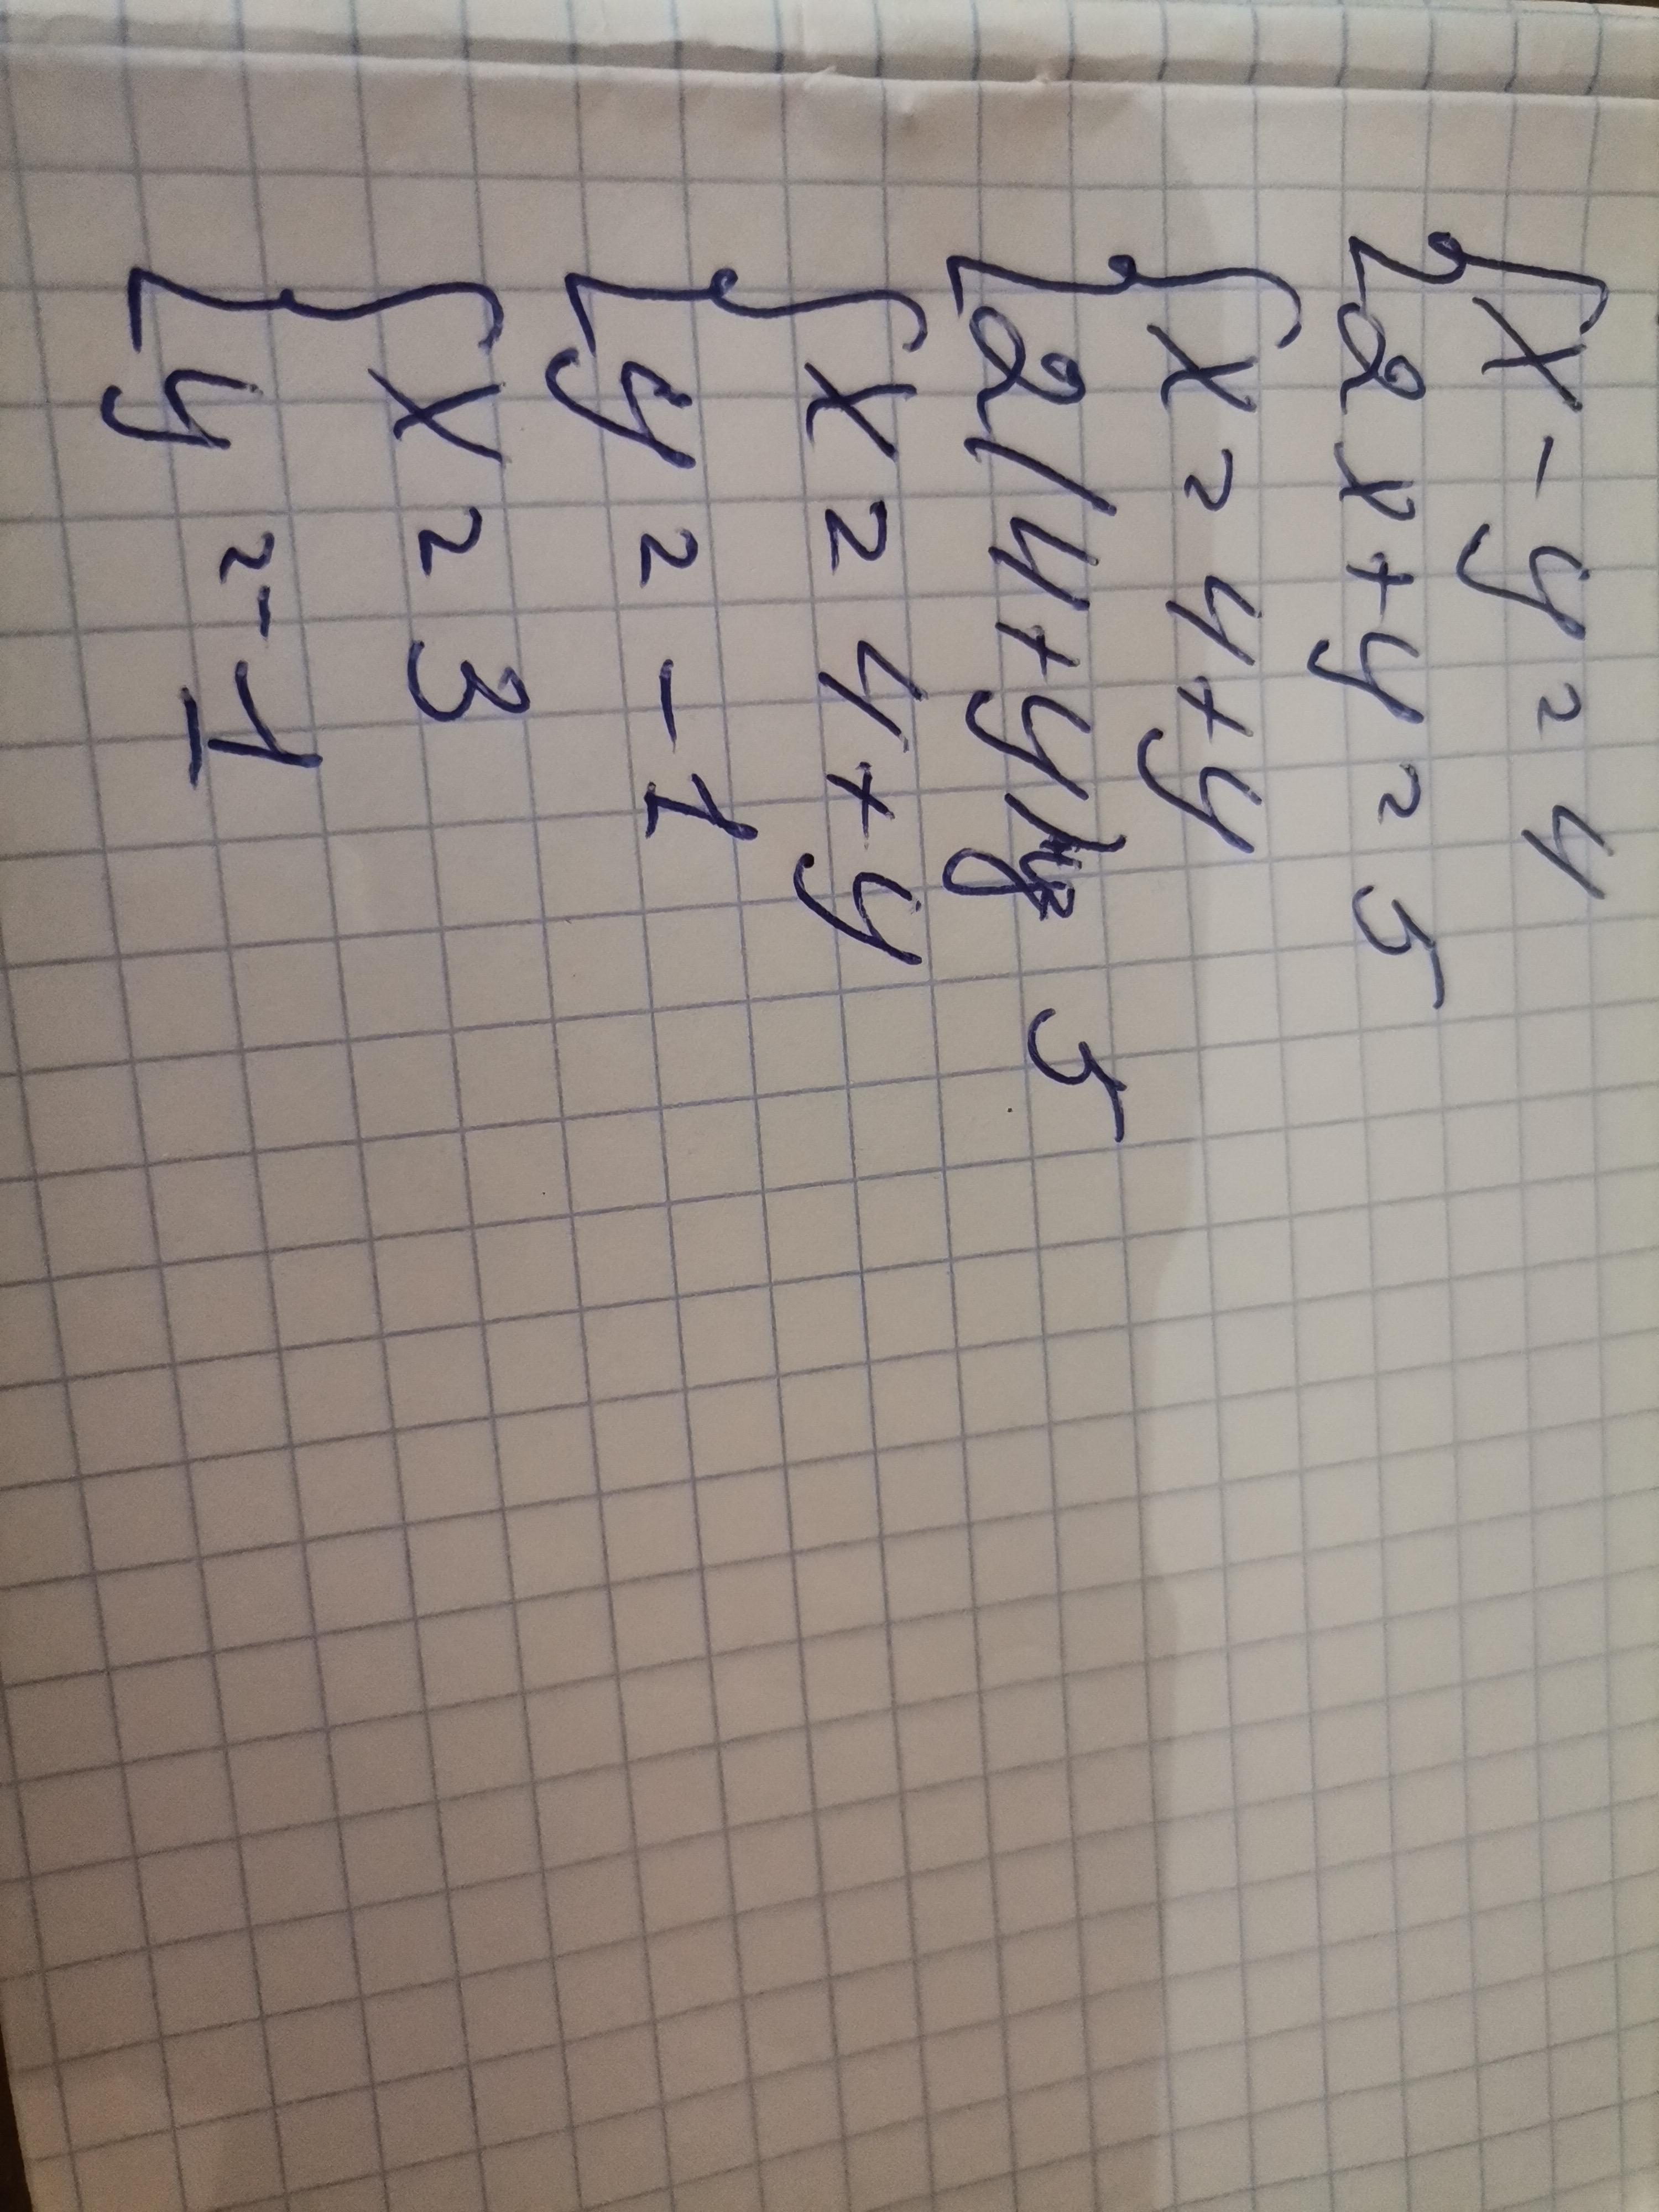 { x - y = 4
2x + y = 5
{ x = 4 + y
2(4 + y) + y = 5
{ x = 4 + y
y = -1
{ x = 3
y = -1